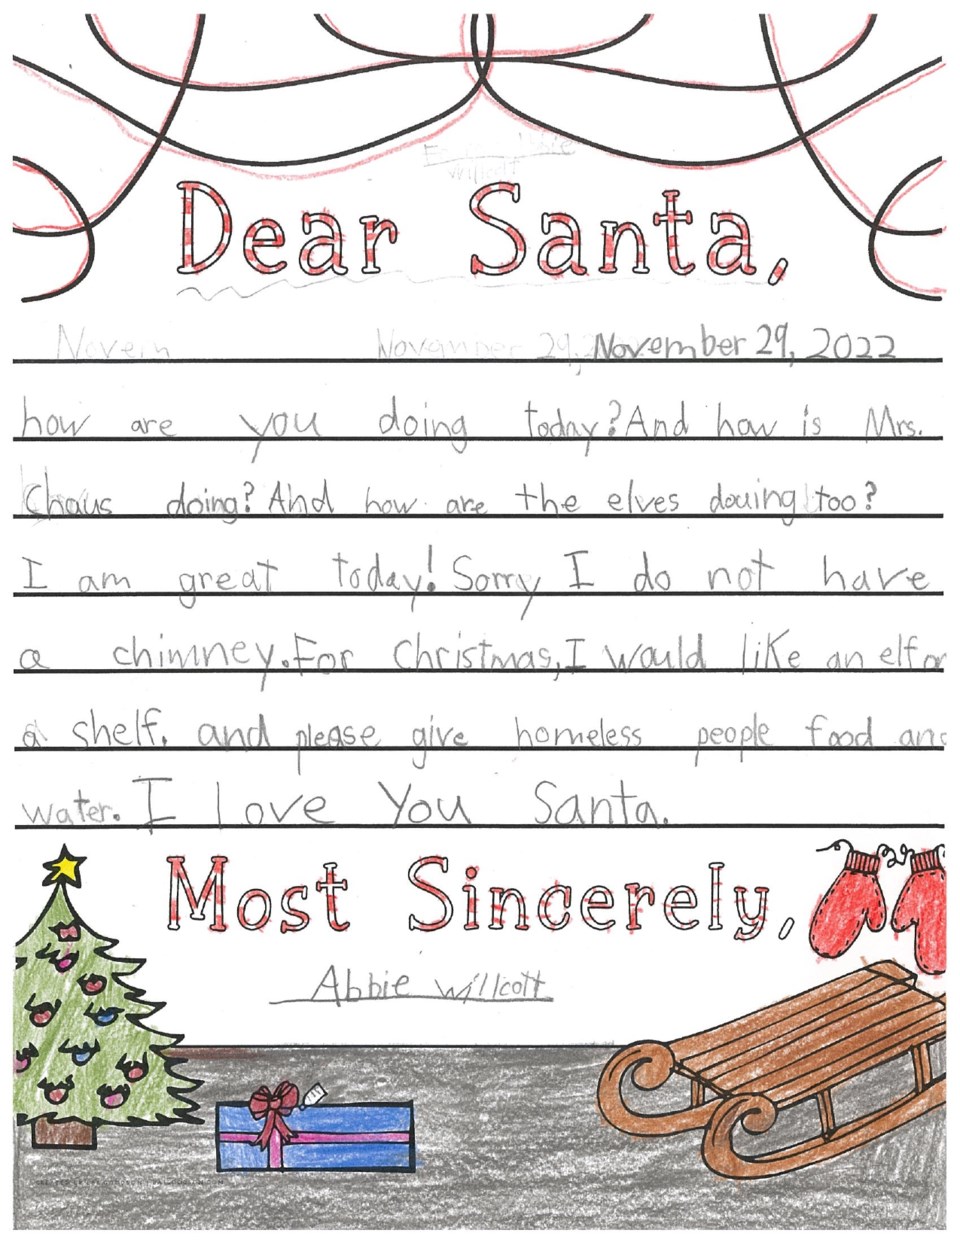 Willcott
Dear Santa,
Novem November 29, 2022
how are you doing today? And how is Mrs.
Chaus doing? And how are the elves douing too?
I am great today! Sorry I do not have
a chimney. For Christmas, I would like an elf on
a shelf. and please give homeless people food and
water. I love You Santa.
Most Sincerely,
Abbie Willcott